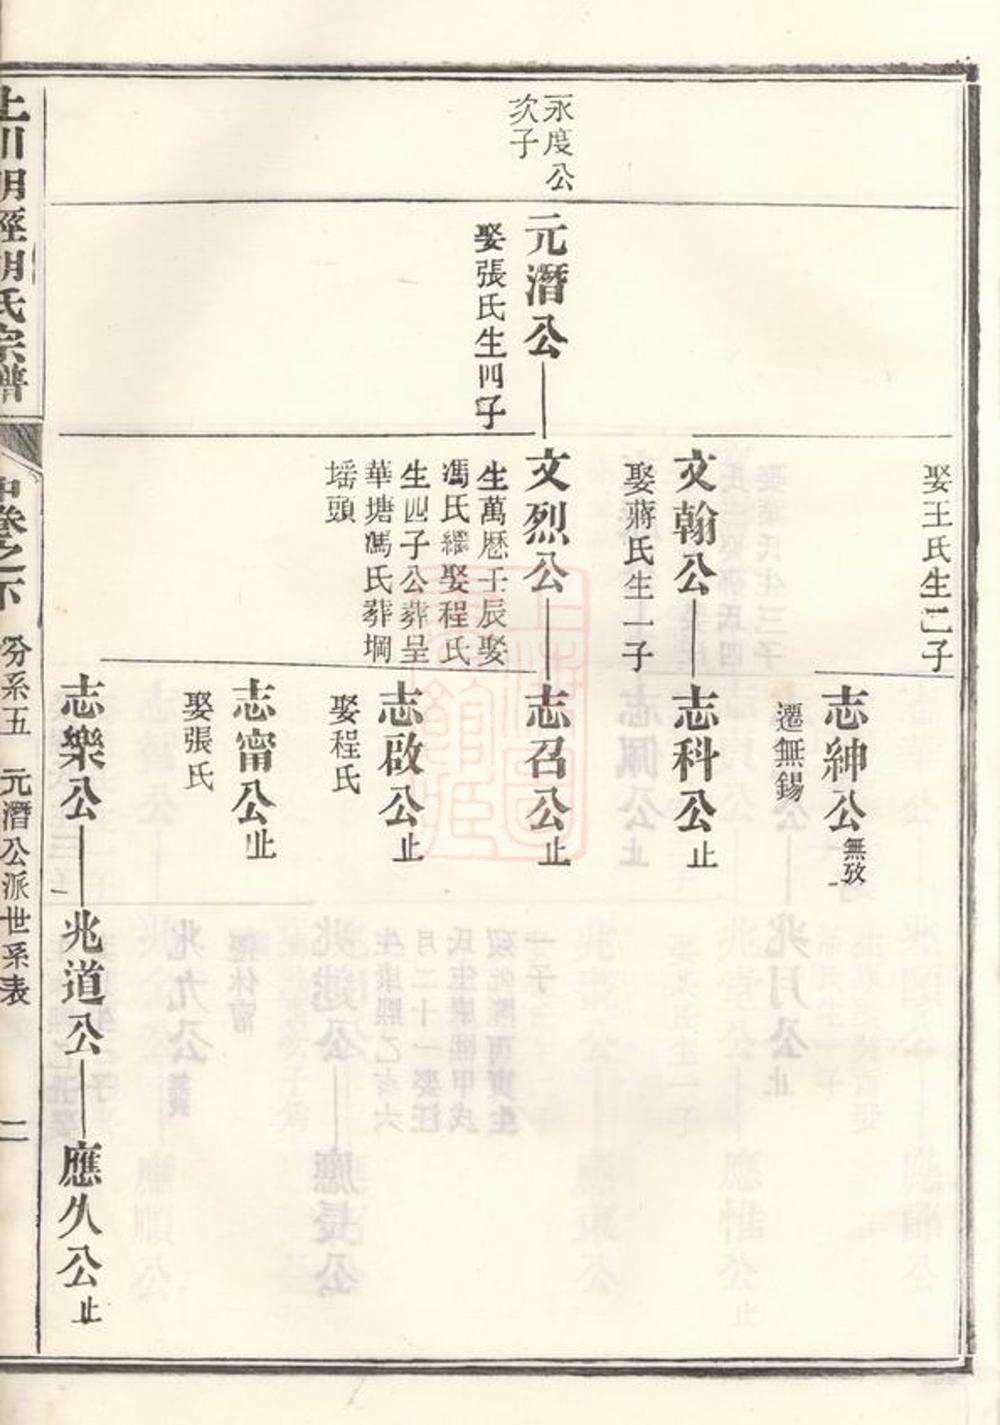 娶王氏生二子
志紳公
無攷
遷無錫
文翰公
娶蔣氏生一子
志科公止
永度公
次子
元潛公
娶張氏生四子
文烈公
生萬厯壬辰娶
馮氏繼娶程氏
生四子公葬呈
華塘馮氏葬堈
塔頭
志召公止
志啟公止
娶程氏
志甯公止
娶張氏
志樂公
兆道公
應久公止
上川明經胡氏宗譜
中卷之下
分系五
元潛公派世系表
二